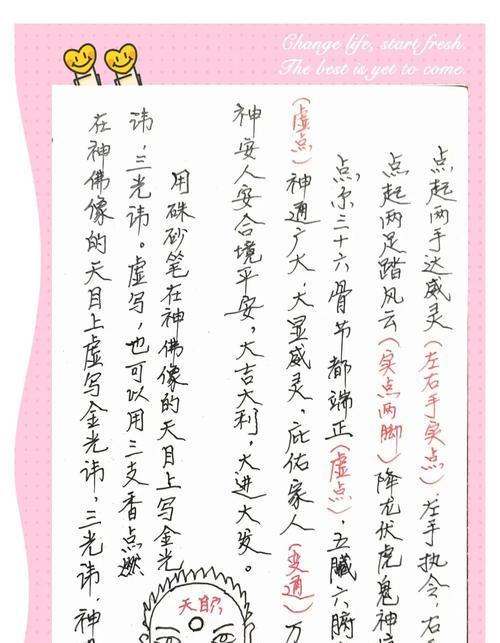 Change life, start fresh.
The best is yet to come.
点起两手达威灵（左右手实点），左手执令，右
点起两足踏风云（实点两脚）降龙伏虎鬼神
点点三十六骨节都端正（虚点），五臟六腑
（虚点）神通广大，大显威灵，庇佑家人（变通）万
神安人安合境平安，大吉大利，大进大发。
用硃砂笔在神佛像的天目上写金光
讳，三光讳。虚写，也可以用三支香点燃
在神佛像的天目上虚写金光讳，三光讳，神
天目穴